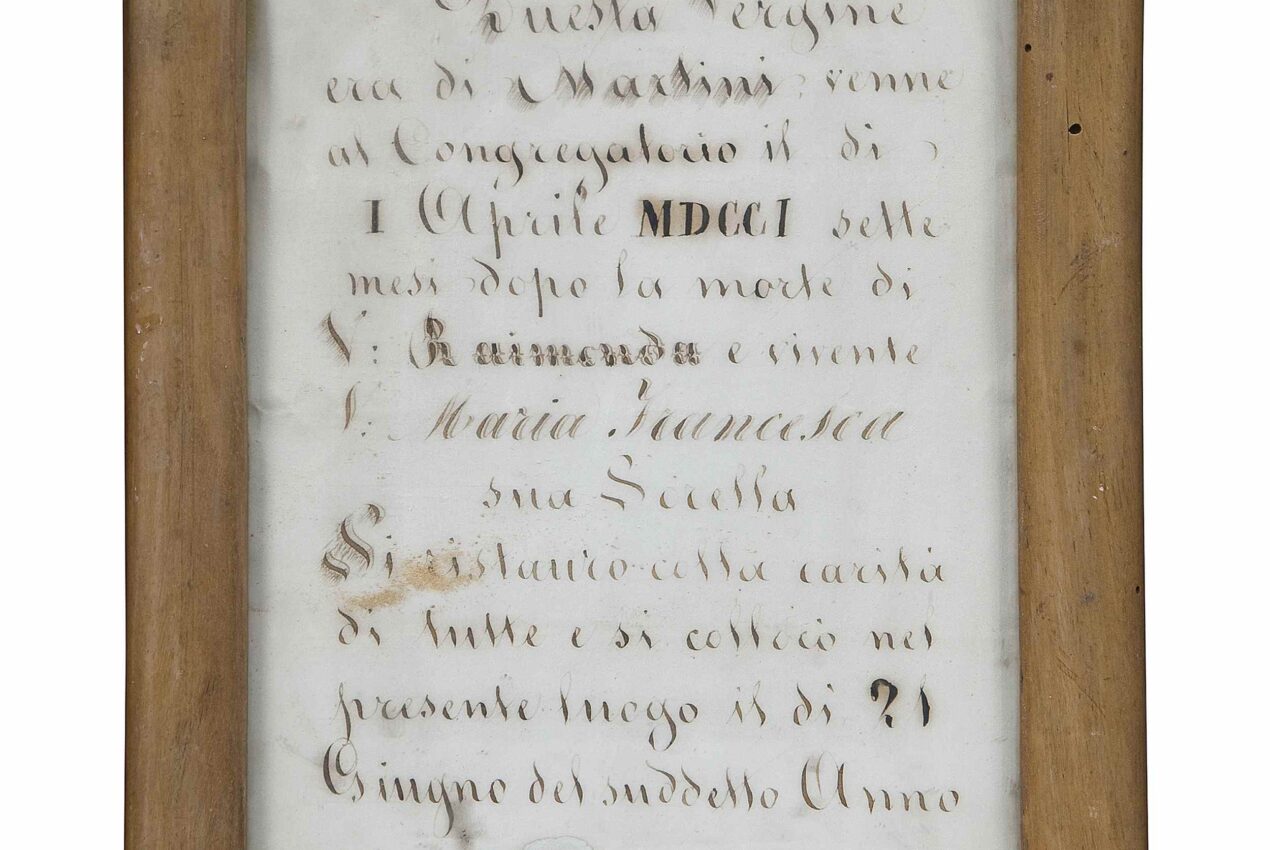 Questa Vergine
era di Martini, venne
al Congregatorio il di
I Aprile MDCCI sette
mesi dopo la morte di
V: Raimonda e vivente
V: Maria Francesca
sua Sorella
Si ristaurò colla carità
di tutte e si collocò nel
presente luogo il di 21
Giugno del suddetto Anno